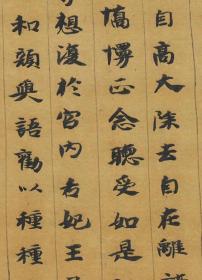 自高大除去自在離
憍慢正念聽受如是
想復於宮内右妃王
和顔輿語勸以種種